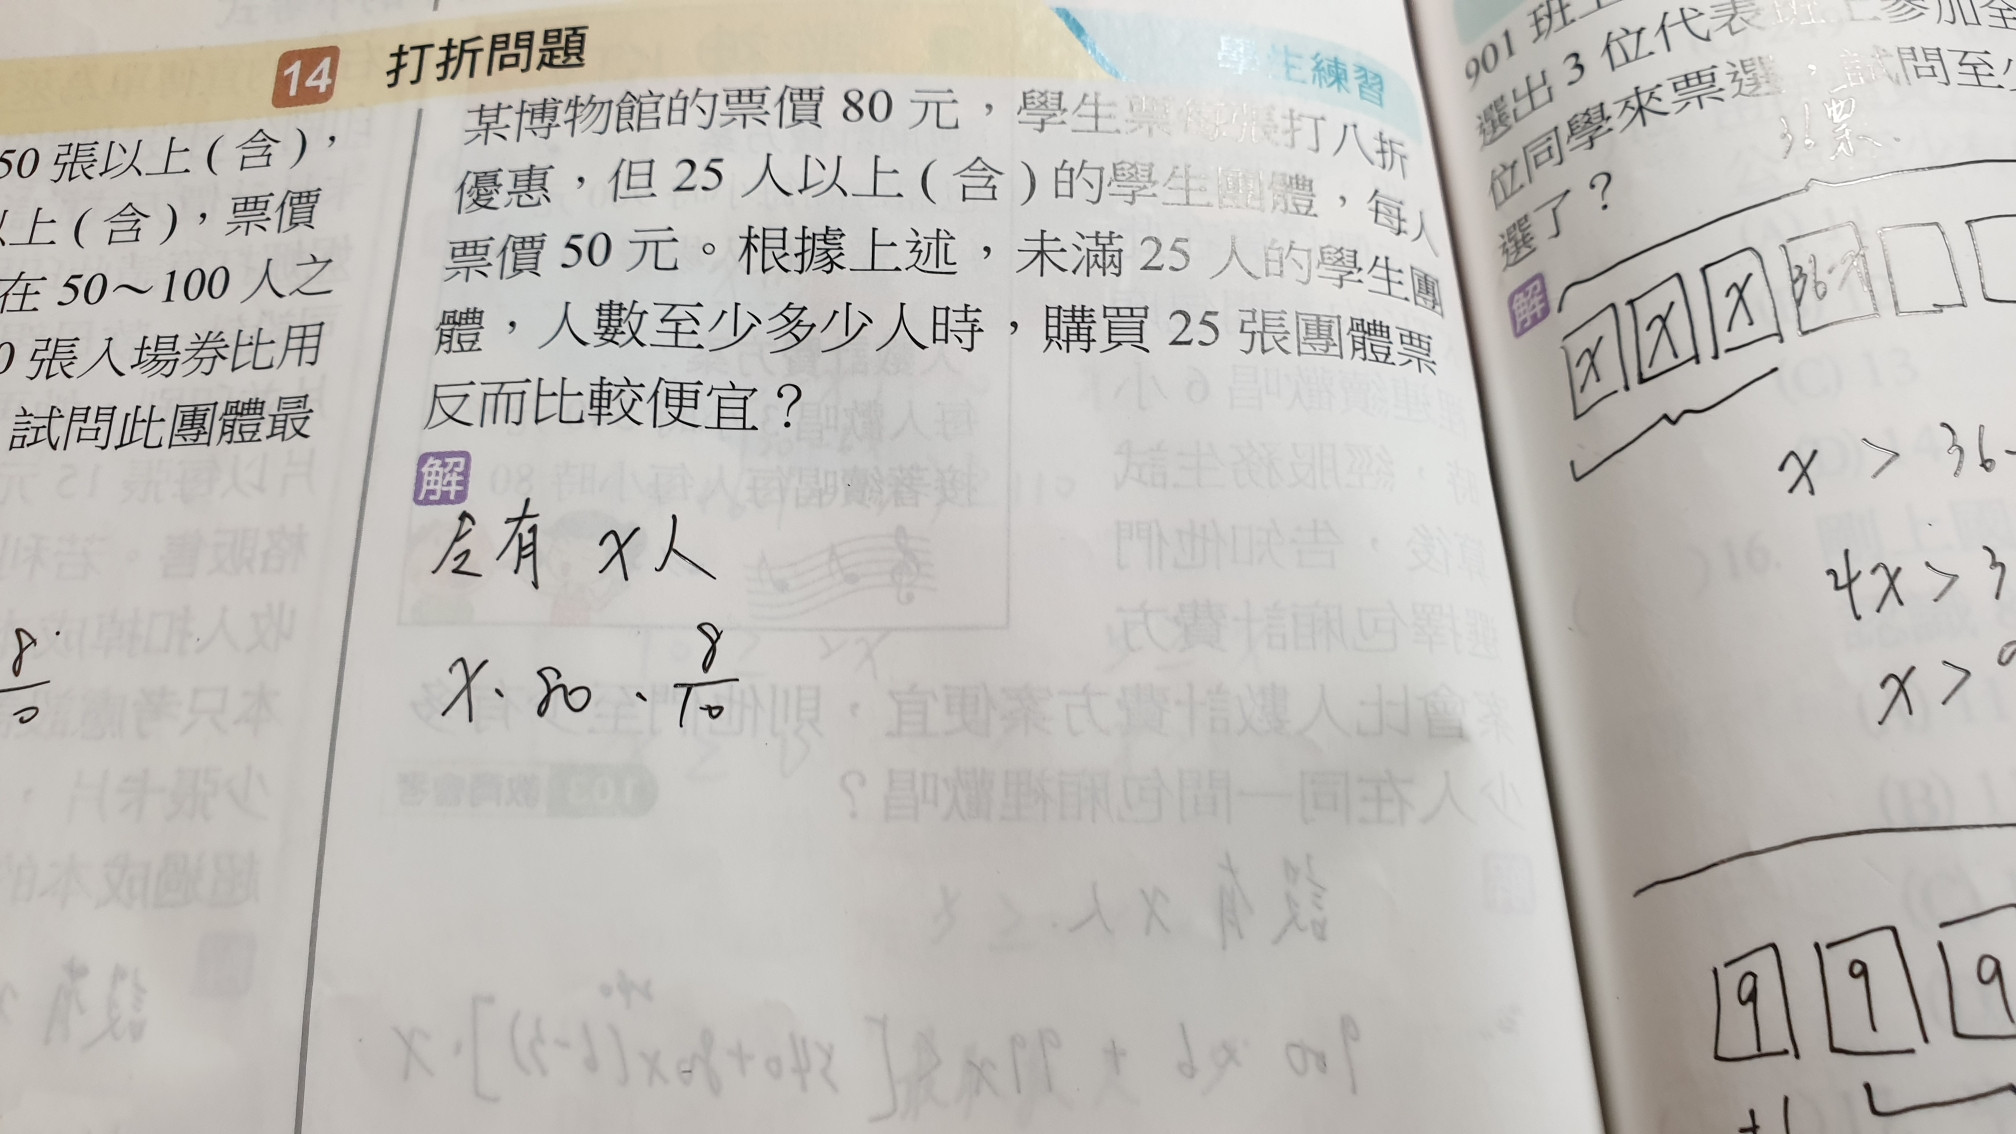 14 打折問題
學生練習
某博物館的票價 80 元，學生票每張打八折
優惠，但 25 人以上 ( 含 ) 的學生團體，每人
票價 50 元。根據上述，未滿 25 人的學生團
體，人數至少多少人時，購買 25 張團體票
反而比較便宜？
解
令有 x 人
x · 80 · 8/10
50 張以上 ( 含 )，
以上 ( 含 )，票價
在 50～100 人之
0 張入場券比用
試問此團體最
8
901 班
選出 3 位代表班上參加全
位同學來票選，試問至少
選了？
36票
解
x x x 36-x
x > 36-
4x > 3
x >
9 9 9